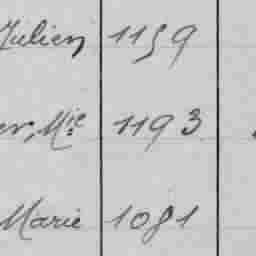 Julien 1159
er, Mie 1193
Marie 1081